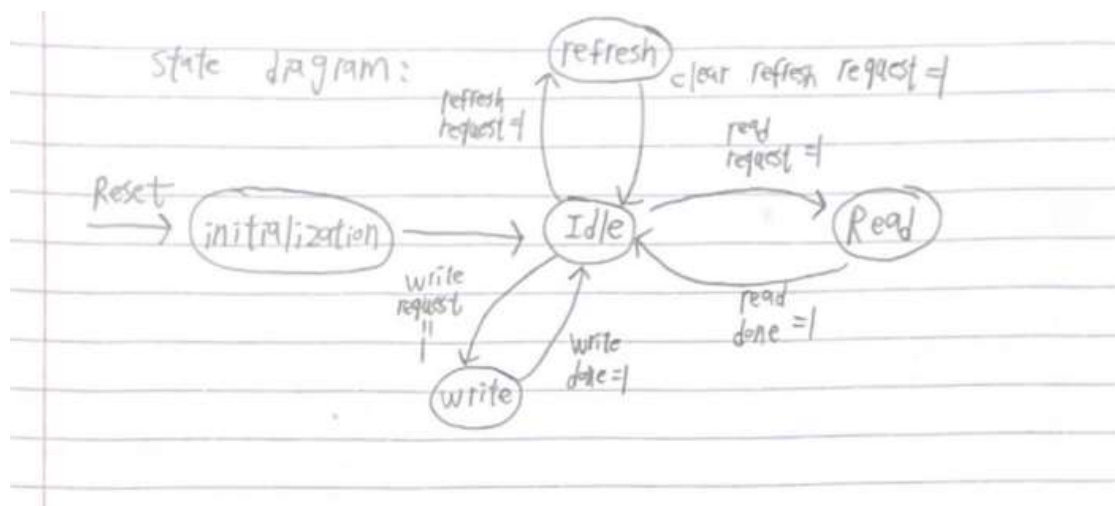 State diagram:
refresh
clear refresh request=1
refresh
request=1
read
request=1
Reset
initialization
Idle
Read
write
request
=
1
read
done=1
write
done=1
write